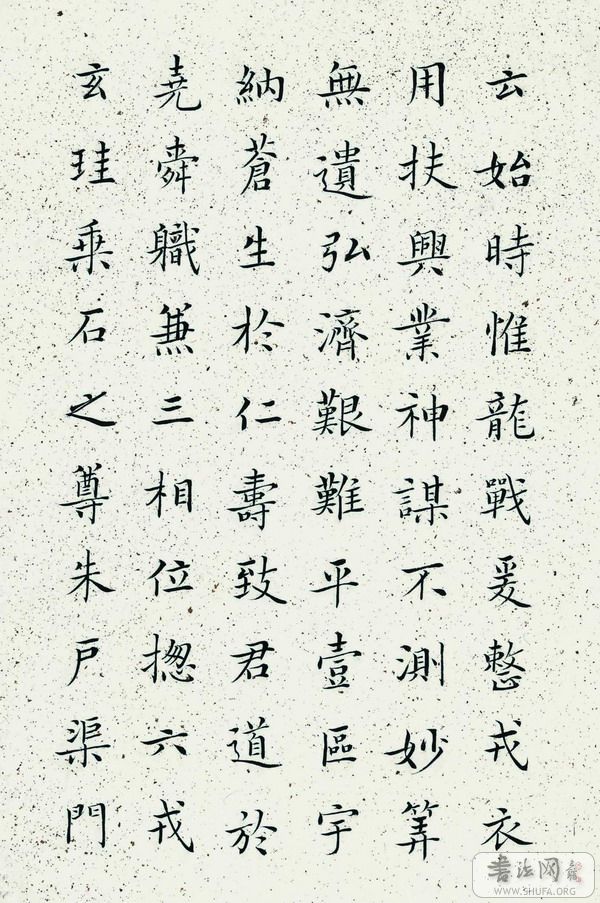 云始時惟龍戰爰整戎衣
用扶興業神謀不測妙筭
無遺弘濟艱難平壹區宇
納蒼生於仁壽致君道於
堯舜職兼三相位揔六戎
玄珪乗石之尊朱戶渠門
書法网
WWW.SHUFA.ORG